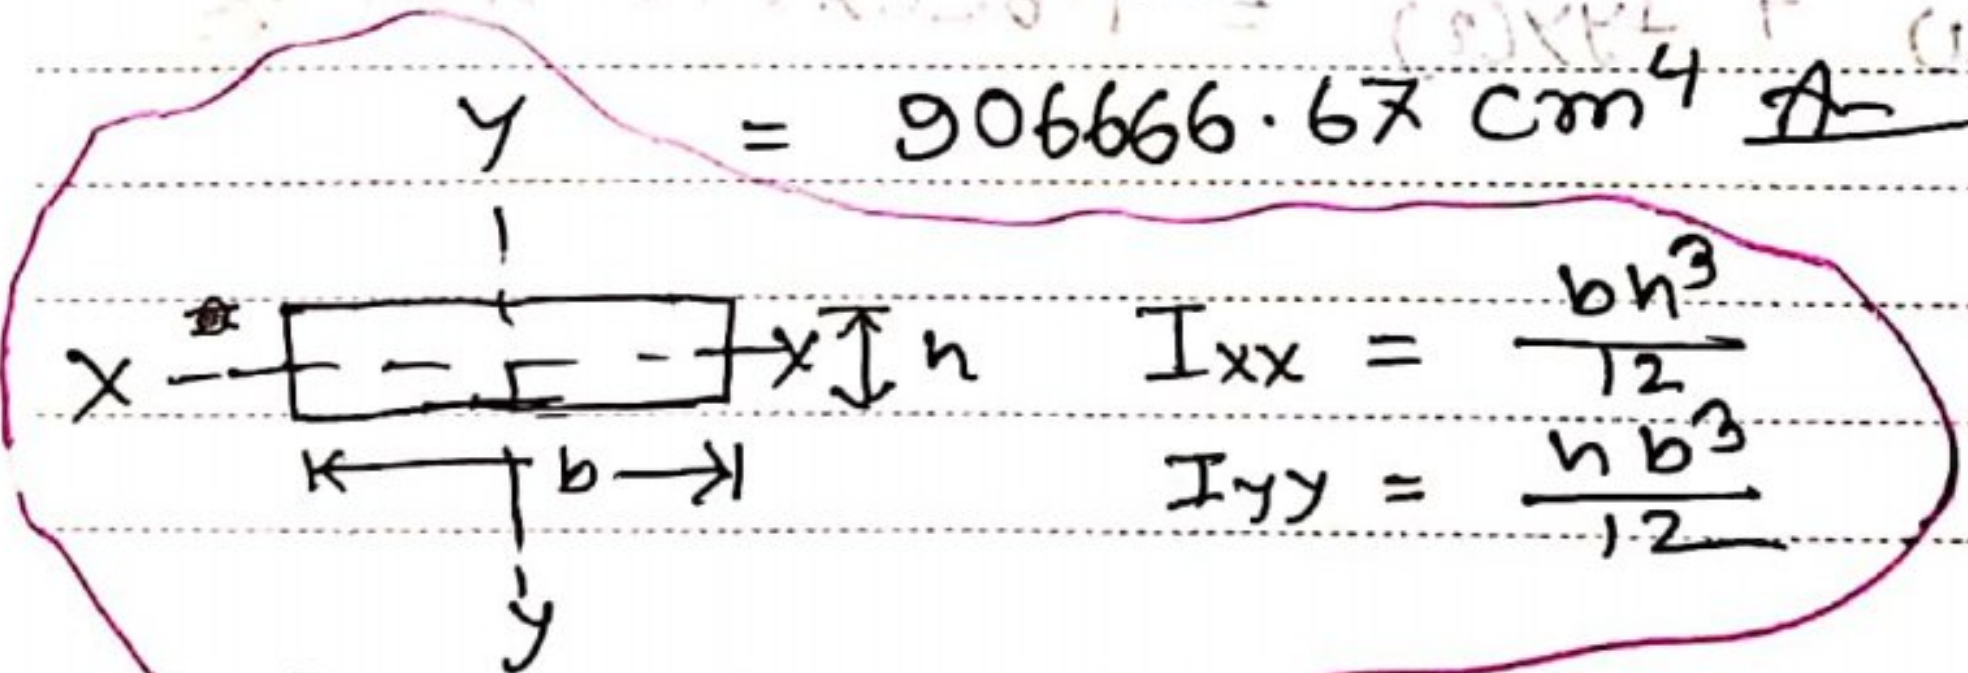 = 906666.67 cm⁴ An
y
X X h
b
y
Ixx = bh³/12
Iyy = hb³/12